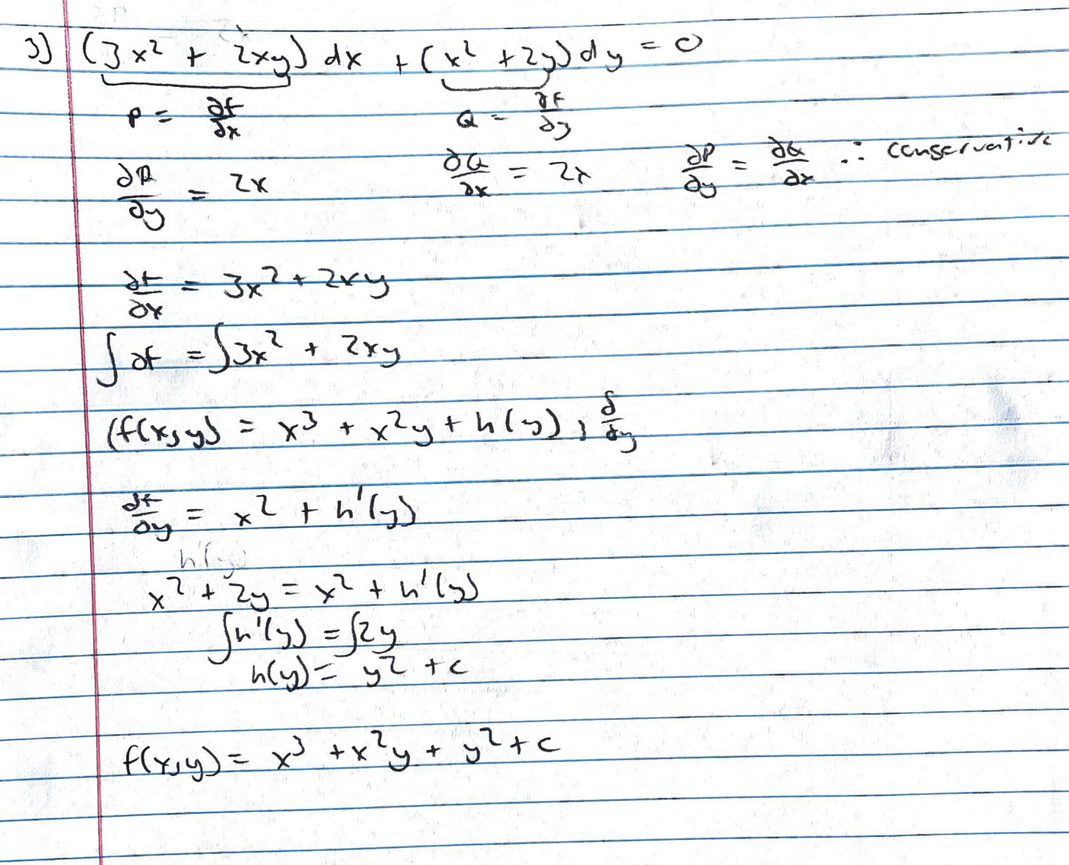 3) (3x² + 2xy) dx + (x² + 2y) dy = 0
P = ∂f/∂x Q = ∂f/∂y
∂P/∂y = 2x ∂Q/∂x = 2x ∂P/∂y = ∂Q/∂x ∴ conservative
∂f/∂x = 3x² + 2xy
∫∂f = ∫3x² + 2xy
(f(x,y) = x³ + x²y + h(y)) ∂/∂y
∂f/∂y = x² + h'(y)
h'(y)
x² + 2y = x² + h'(y)
∫h'(y) = ∫2y
h(y) = y² + c
f(x,y) = x³ + x²y + y² + c